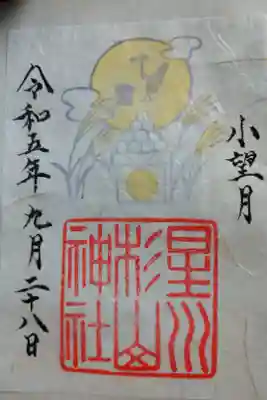 小望月
星川
杉山
神社
令和五年九月二十八日